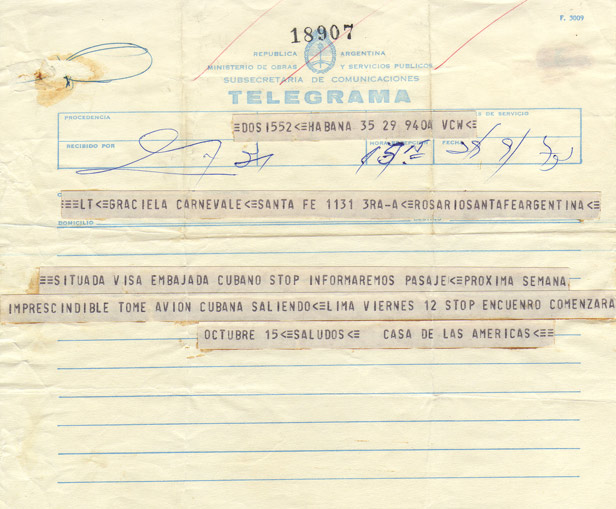 F. 3009
18907
REPUBLICA ARGENTINA
MINISTERIO DE OBRAS Y SERVICIOS PUBLICOS
SUBSECRETARIA DE COMUNICACIONES
TELEGRAMA
PROCEDENCIA S DE SERVICIO
≡DOS1552<≡HABANA 35 29 940A VCW<≡
RECIBIDO POR HORA RECEPCION FECHA
≡≡LT<≡GRACIELA CARNEVALE<≡SANTA FE 1131 3RA-A<≡ROSARIOSANTAFEARGENTINA<≡
DOMICILIO
≡≡SITUADA VISA EMBAJADA CUBANO STOP INFORMAREMOS PASAJE<≡PROXIMA SEMANA
IMPRESCINDIBLE TOME AVION CUBANA SALIENDO<≡LIMA VIERNES 12 STOP ENCUENRO COMENZARA
OCTUBRE 15<≡SALUDOS<≡ CASA DE LAS AMERICAS<≡≡